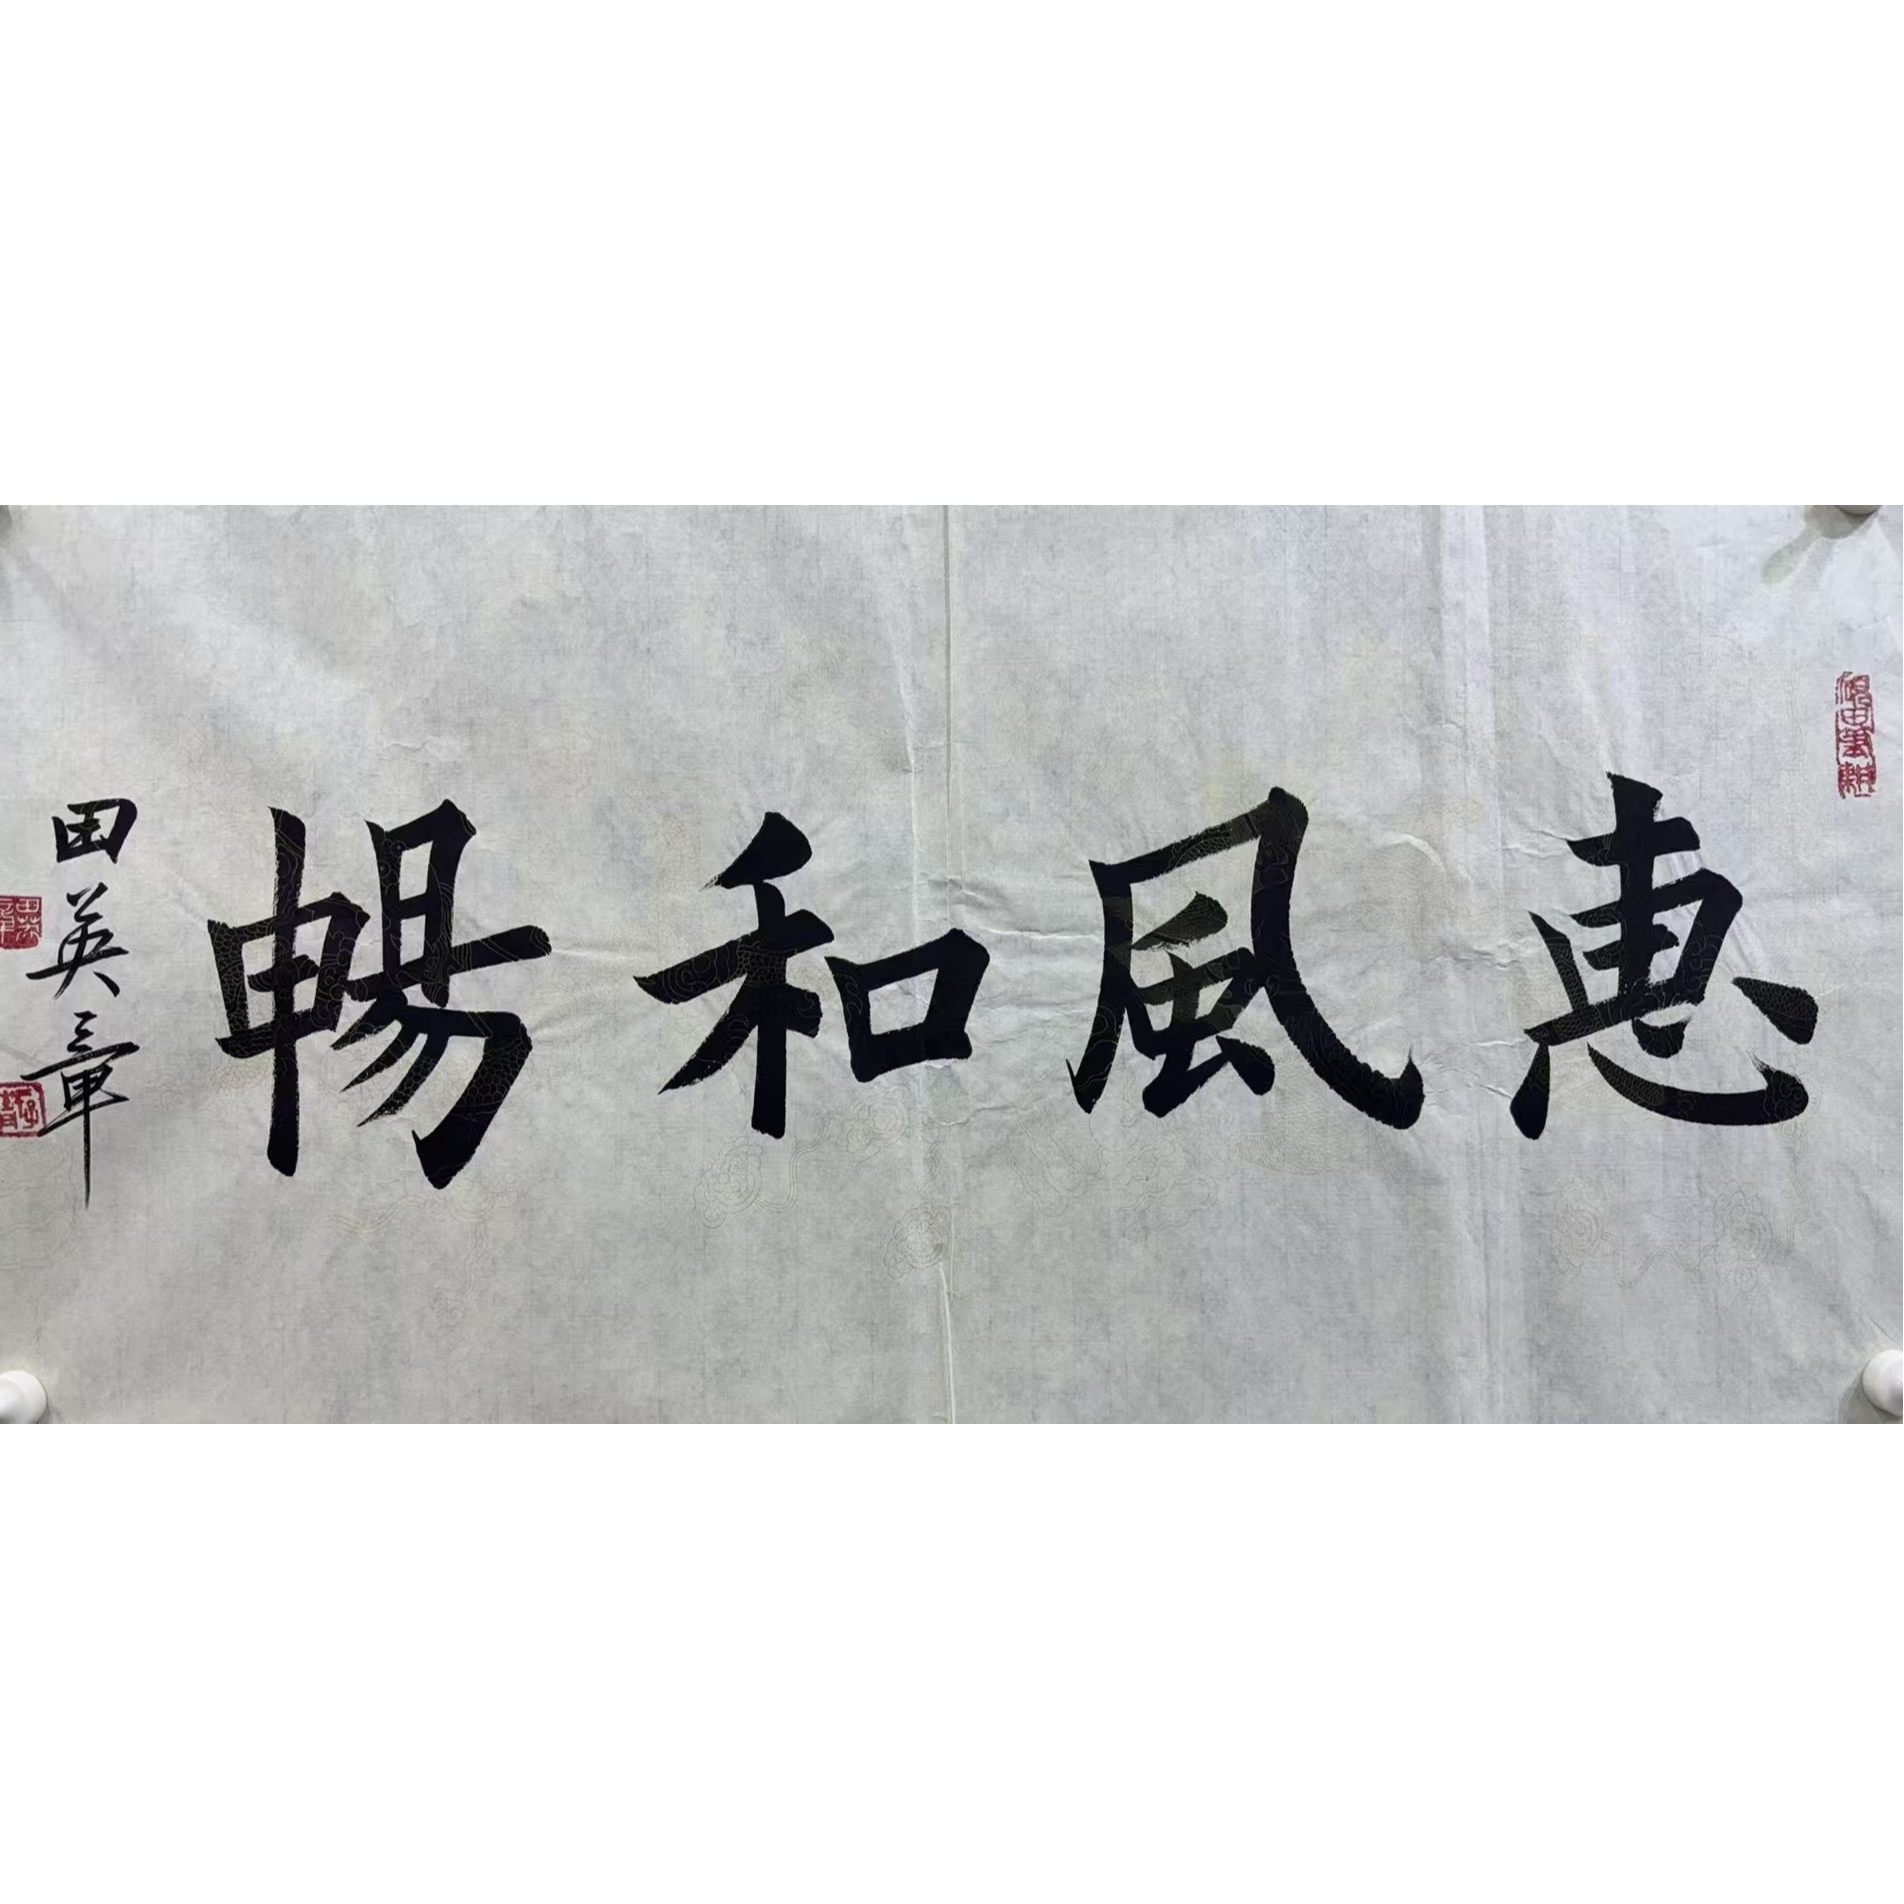 惠風和暢
田英章